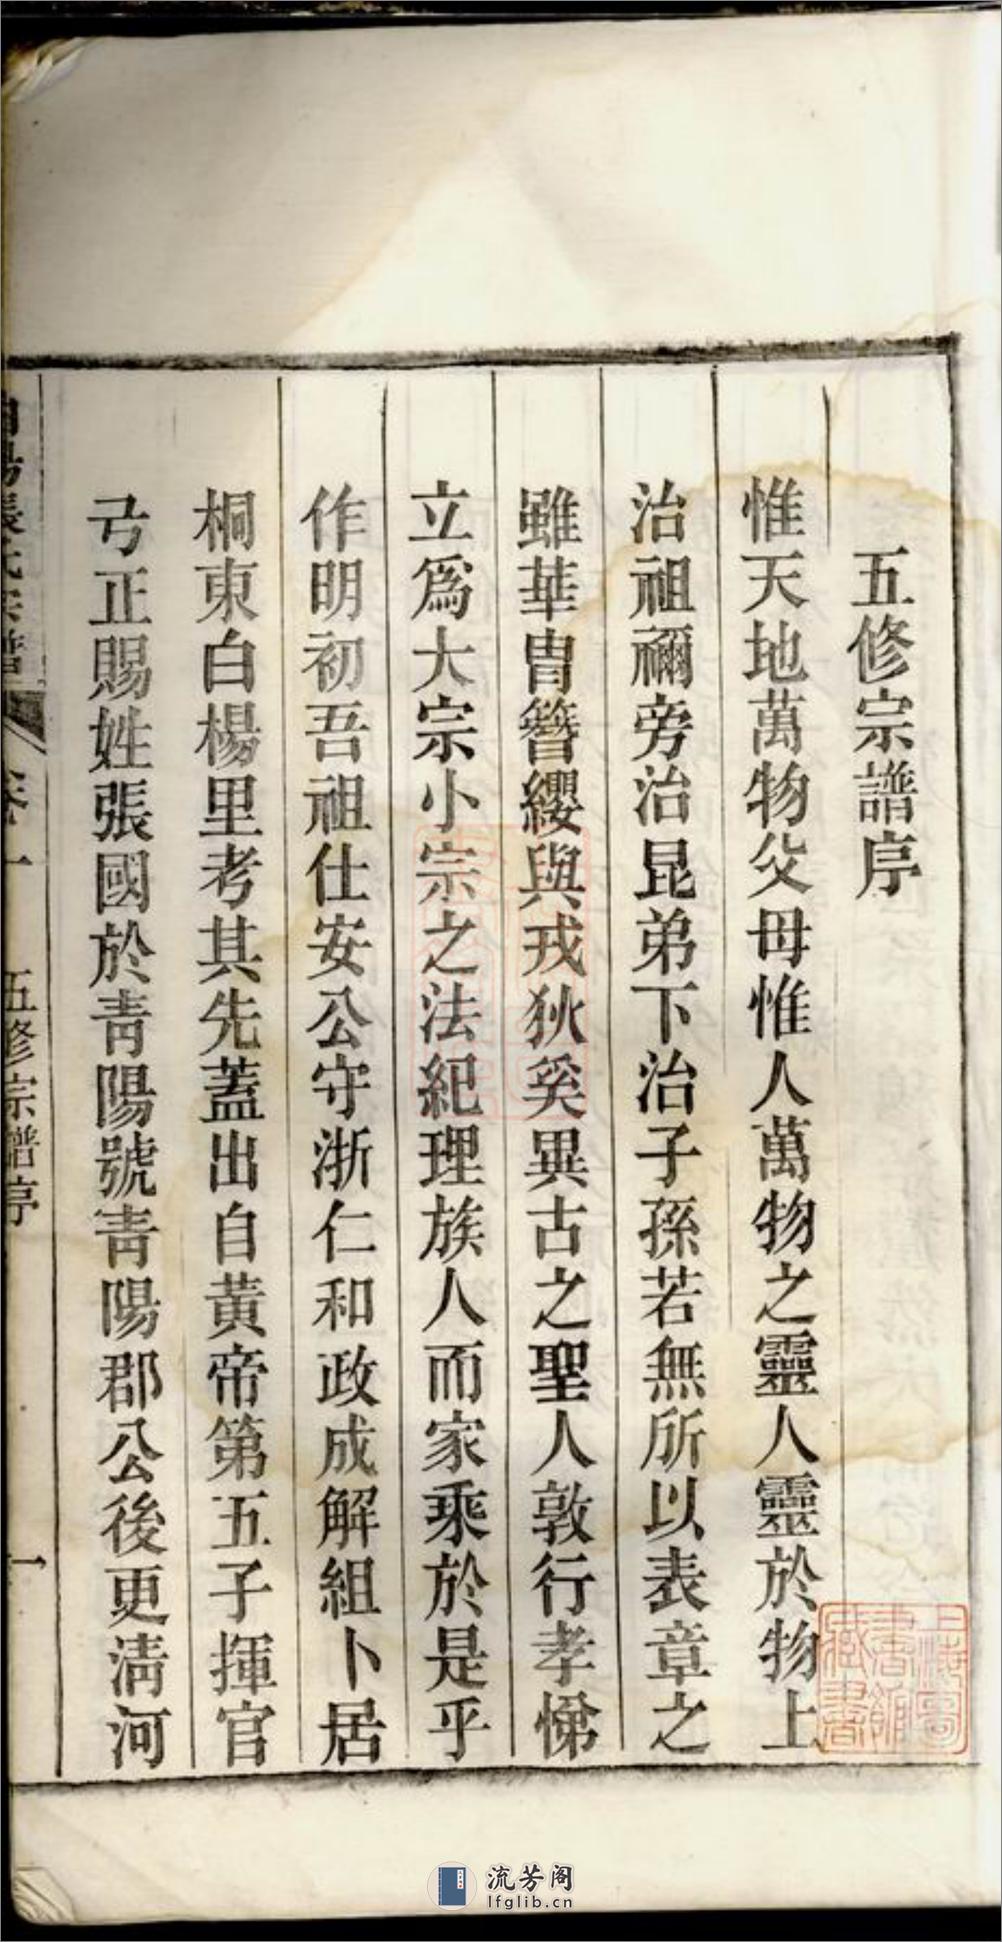 五修宗譜序
惟天地萬物父母惟人萬物之靈人靈於物上
治祖禰旁治昆弟下治子孫若無所以表章之
雖華冑簪纓與戎狄奚異古之聖人敦行孝悌
立爲大宗小宗之法紀理族人而家乘於是乎
作明初吾祖仕安公守浙仁和政成解組卜居
桐東白楊里考其先蓋出自黃帝第五子揮官
弓正賜姓張國於靑陽號靑陽郡公後更淸河
張氏宗譜
卷一
五修宗譜序
一
上海圖
書館
藏書
流芳阁
lfglib.cn